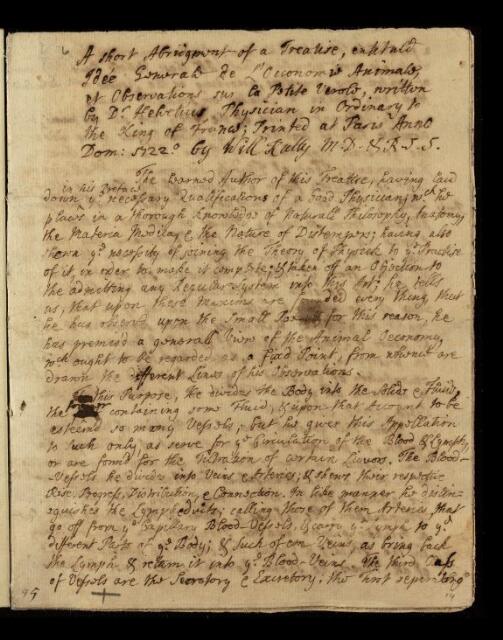 A short Abridgment of a Treatise, entituld
Idée Generale de L'Oeconomie Animale,
et Observations sur la Petite Verole, written
by Dr. Helvetius, Physician in Ordinary to
the King of France; Printed at Paris Anno
Dom: 1722. by Will: Rutty M.D. & R.S.S.
The Learned Author of this Treatise, having laid
in his Preface
down ye. necessary Qualifications of a Good Physician, wch. he
places in a thorough Knowledge of Naturall Philosophy, Anatomy,
the Materia Medica, & the Nature of Distempers; having also
shewn ye. necessity of joining the Theory of Physick to ye. Practise
of it, in order to make it complete; & taken off an Objection to
the admitting any Regular System into this Art; he tells
us, that upon these Maxims are ded every thing that
he has observd upon the Small for this reason, he
has premis'd a generall View of the Animal Oeconomy,
wch ought to be regarded as a fixd Point, from whence are
drawn the different Lines of his Observations.
this Purpose, he divides the Body into the Solids & Fluids,
the containing some Fluid, & upon that Account to be
esteemd so many Vessels; but he gives this Appellation
to such only as serve for ye. Circulation of the Blood & Lympha,
or are formd for the Filtration of certain Liquors. The Blood-
Vessels he divides into Veins & Arteries; & shews their respective
Rise, Progress, Distribution, & Connection. In like manner he distin-
guishes the Lymphæducts; calling those of them Arteries, that
go off from ye. Capillary Blood-Vessels, & carry ye. Lympha to ye.
different Parts of ye. Body; & such of em Veins, as bring back
the Lymph & return it into ye. Blood-Veins. The third Class
of Vessels are the Secretory & Excretory; the first seperating
95